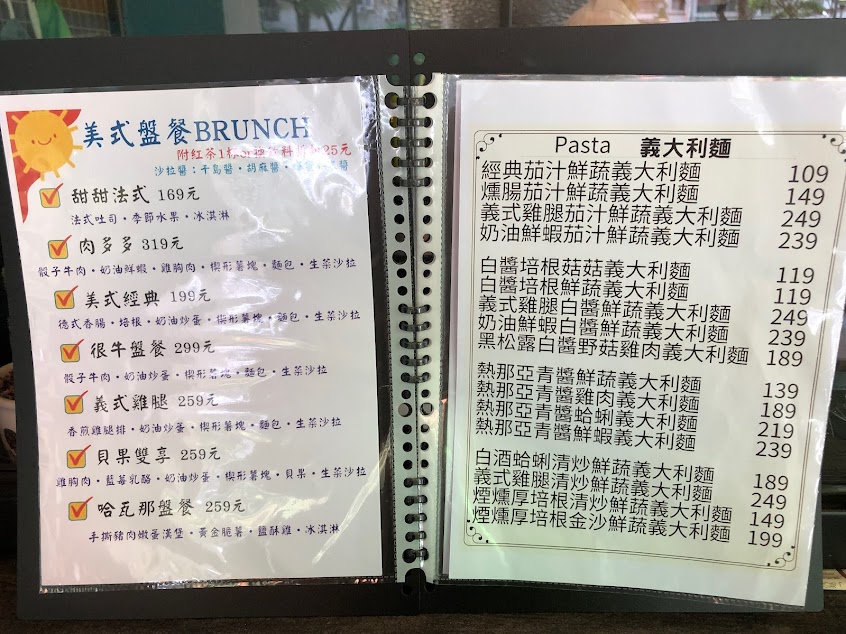 美式盤餐BRUNCH
附紅茶1杯
25元
沙拉醬：千島醬・胡麻醬・
甜甜法式 169元
法式吐司・季節水果・冰淇淋
肉多多 319元
骰子牛肉・奶油鮮蝦・雞胸肉・楔形薯塊・麵包・生菜沙拉
美式經典 199元
德式香腸・培根・奶油炒蛋・楔形薯塊・麵包・生菜沙拉
很牛盤餐 299元
骰子牛肉・奶油炒蛋・楔形薯塊・麵包・生菜沙拉
義式雞腿 259元
香煎雞腿排・奶油炒蛋・楔形薯塊・麵包・生菜沙拉
貝果雙享 259元
雞胸肉・藍莓乳酪・奶油炒蛋・楔形薯塊・貝果・生菜沙拉
哈瓦那盤餐 259元
手撕豬肉嫩蛋漢堡・黃金脆薯・鹽酥雞・冰淇淋
Pasta 義大利麵
經典茄汁鮮蔬義大利麵 109
燻腸茄汁鮮蔬義大利麵 149
義式雞腿茄汁鮮蔬義大利麵 249
奶油鮮蝦茄汁鮮蔬義大利麵 239
白醬培根菇菇義大利麵 119
白醬培根鮮蔬義大利麵 119
義式雞腿白醬鮮蔬義大利麵 249
奶油鮮蝦白醬鮮蔬義大利麵 239
黑松露白醬野菇雞肉義大利麵 189
熱那亞青醬鮮蔬義大利麵 139
熱那亞青醬雞肉義大利麵 189
熱那亞青醬蛤蜊義大利麵 219
熱那亞青醬鮮蝦義大利麵 239
白酒蛤蜊清炒鮮蔬義大利麵 189
義式雞腿清炒鮮蔬義大利麵 249
煙燻厚培根清炒鮮蔬義大利麵 149
煙燻厚培根金沙鮮蔬義大利麵 199